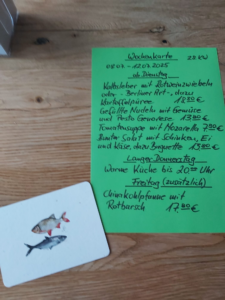 Wochenkarte 11 KW
08.03 - 12.03.2025
ab Dienstag
Kalbsleber mit Rotweinzwiebeln
oder - Berliner Art-, dazu
Kartoffelpüree 18.50 €
Gefüllte Nudeln mit Gemüse
und Pesto Genovese 13.90 €
Tomatensuppe mit Mozzarella 7.90 €
Bunter Salat mit Schinken, Ei
und Käse, dazu Baguette 13.90 €
Langer Donnerstag
Warme Küche bis 20.00 Uhr
Freitag (zusätzlich)
Chinakohlpfanne mit
Rotbarsch 17.80 €